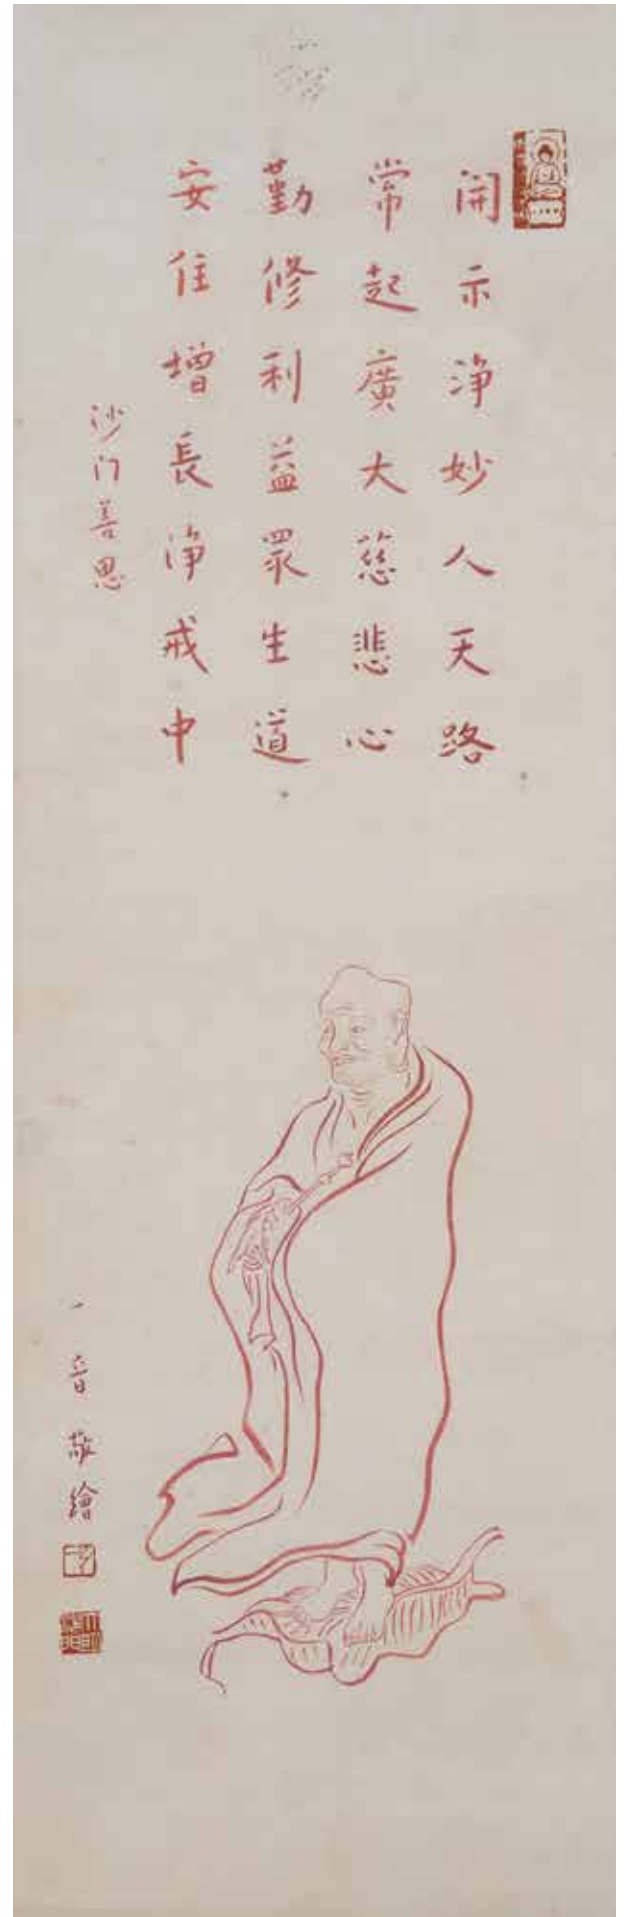 開示淨妙人天路
常起廣大慈悲心
勤修利益眾生道
安住增長淨戒中
沙门善思
一音敬繪